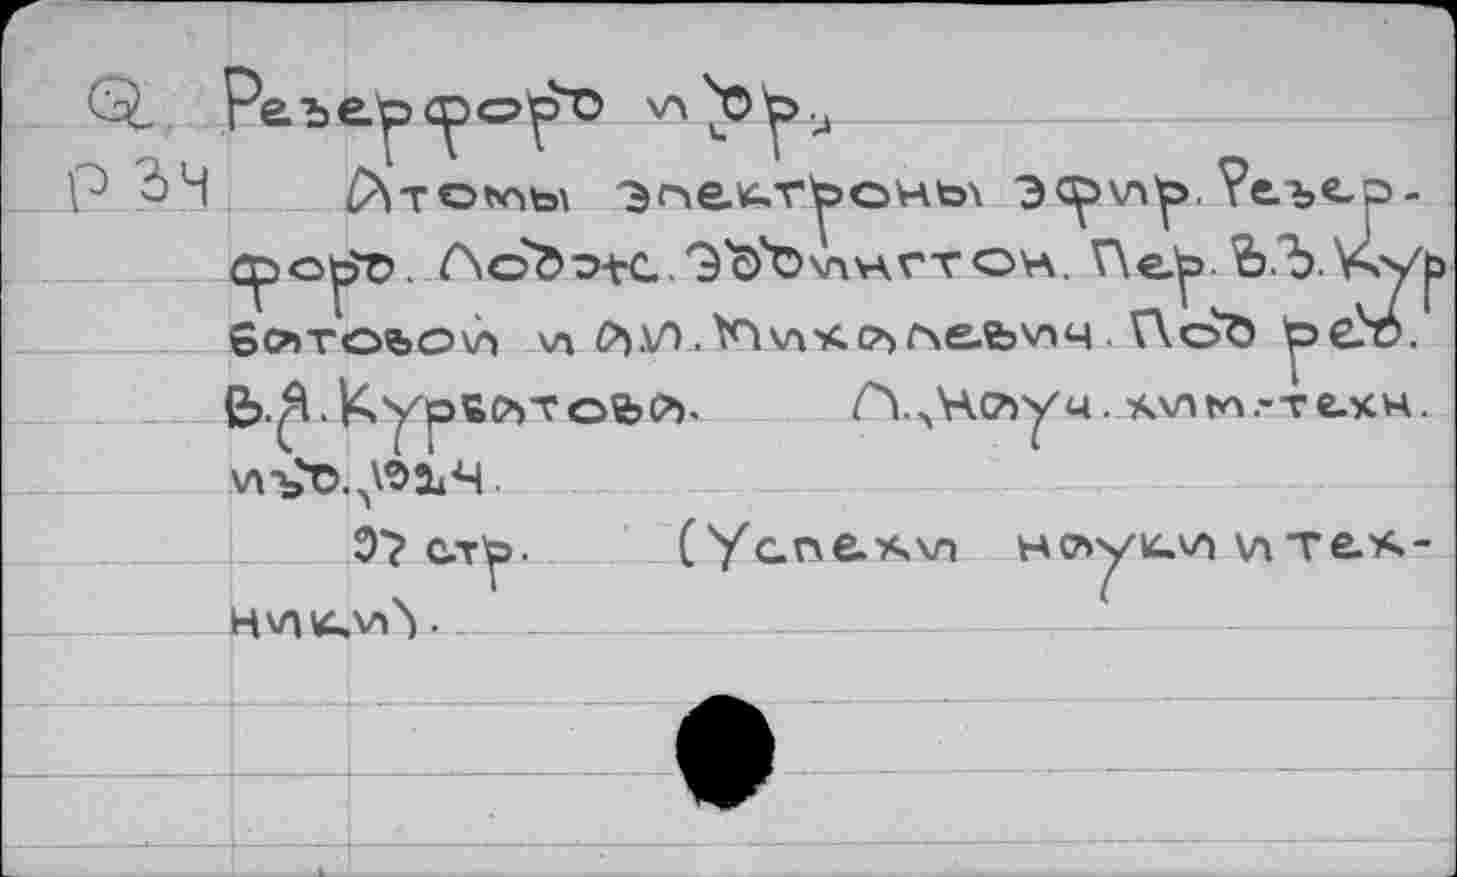 Q Резерфорд и др.,
Р 34 Атомы электроны эфир. Резер-
форд. Лодж. Эддингтон. Пер. В.З. Кур
батовой и А.И. Михалевич. Под ред.
В.Я. Курбатова. Л., Науч. хим.-техн.
изд., 1924.
97 стр. (Успехи науки и тех-
ники).